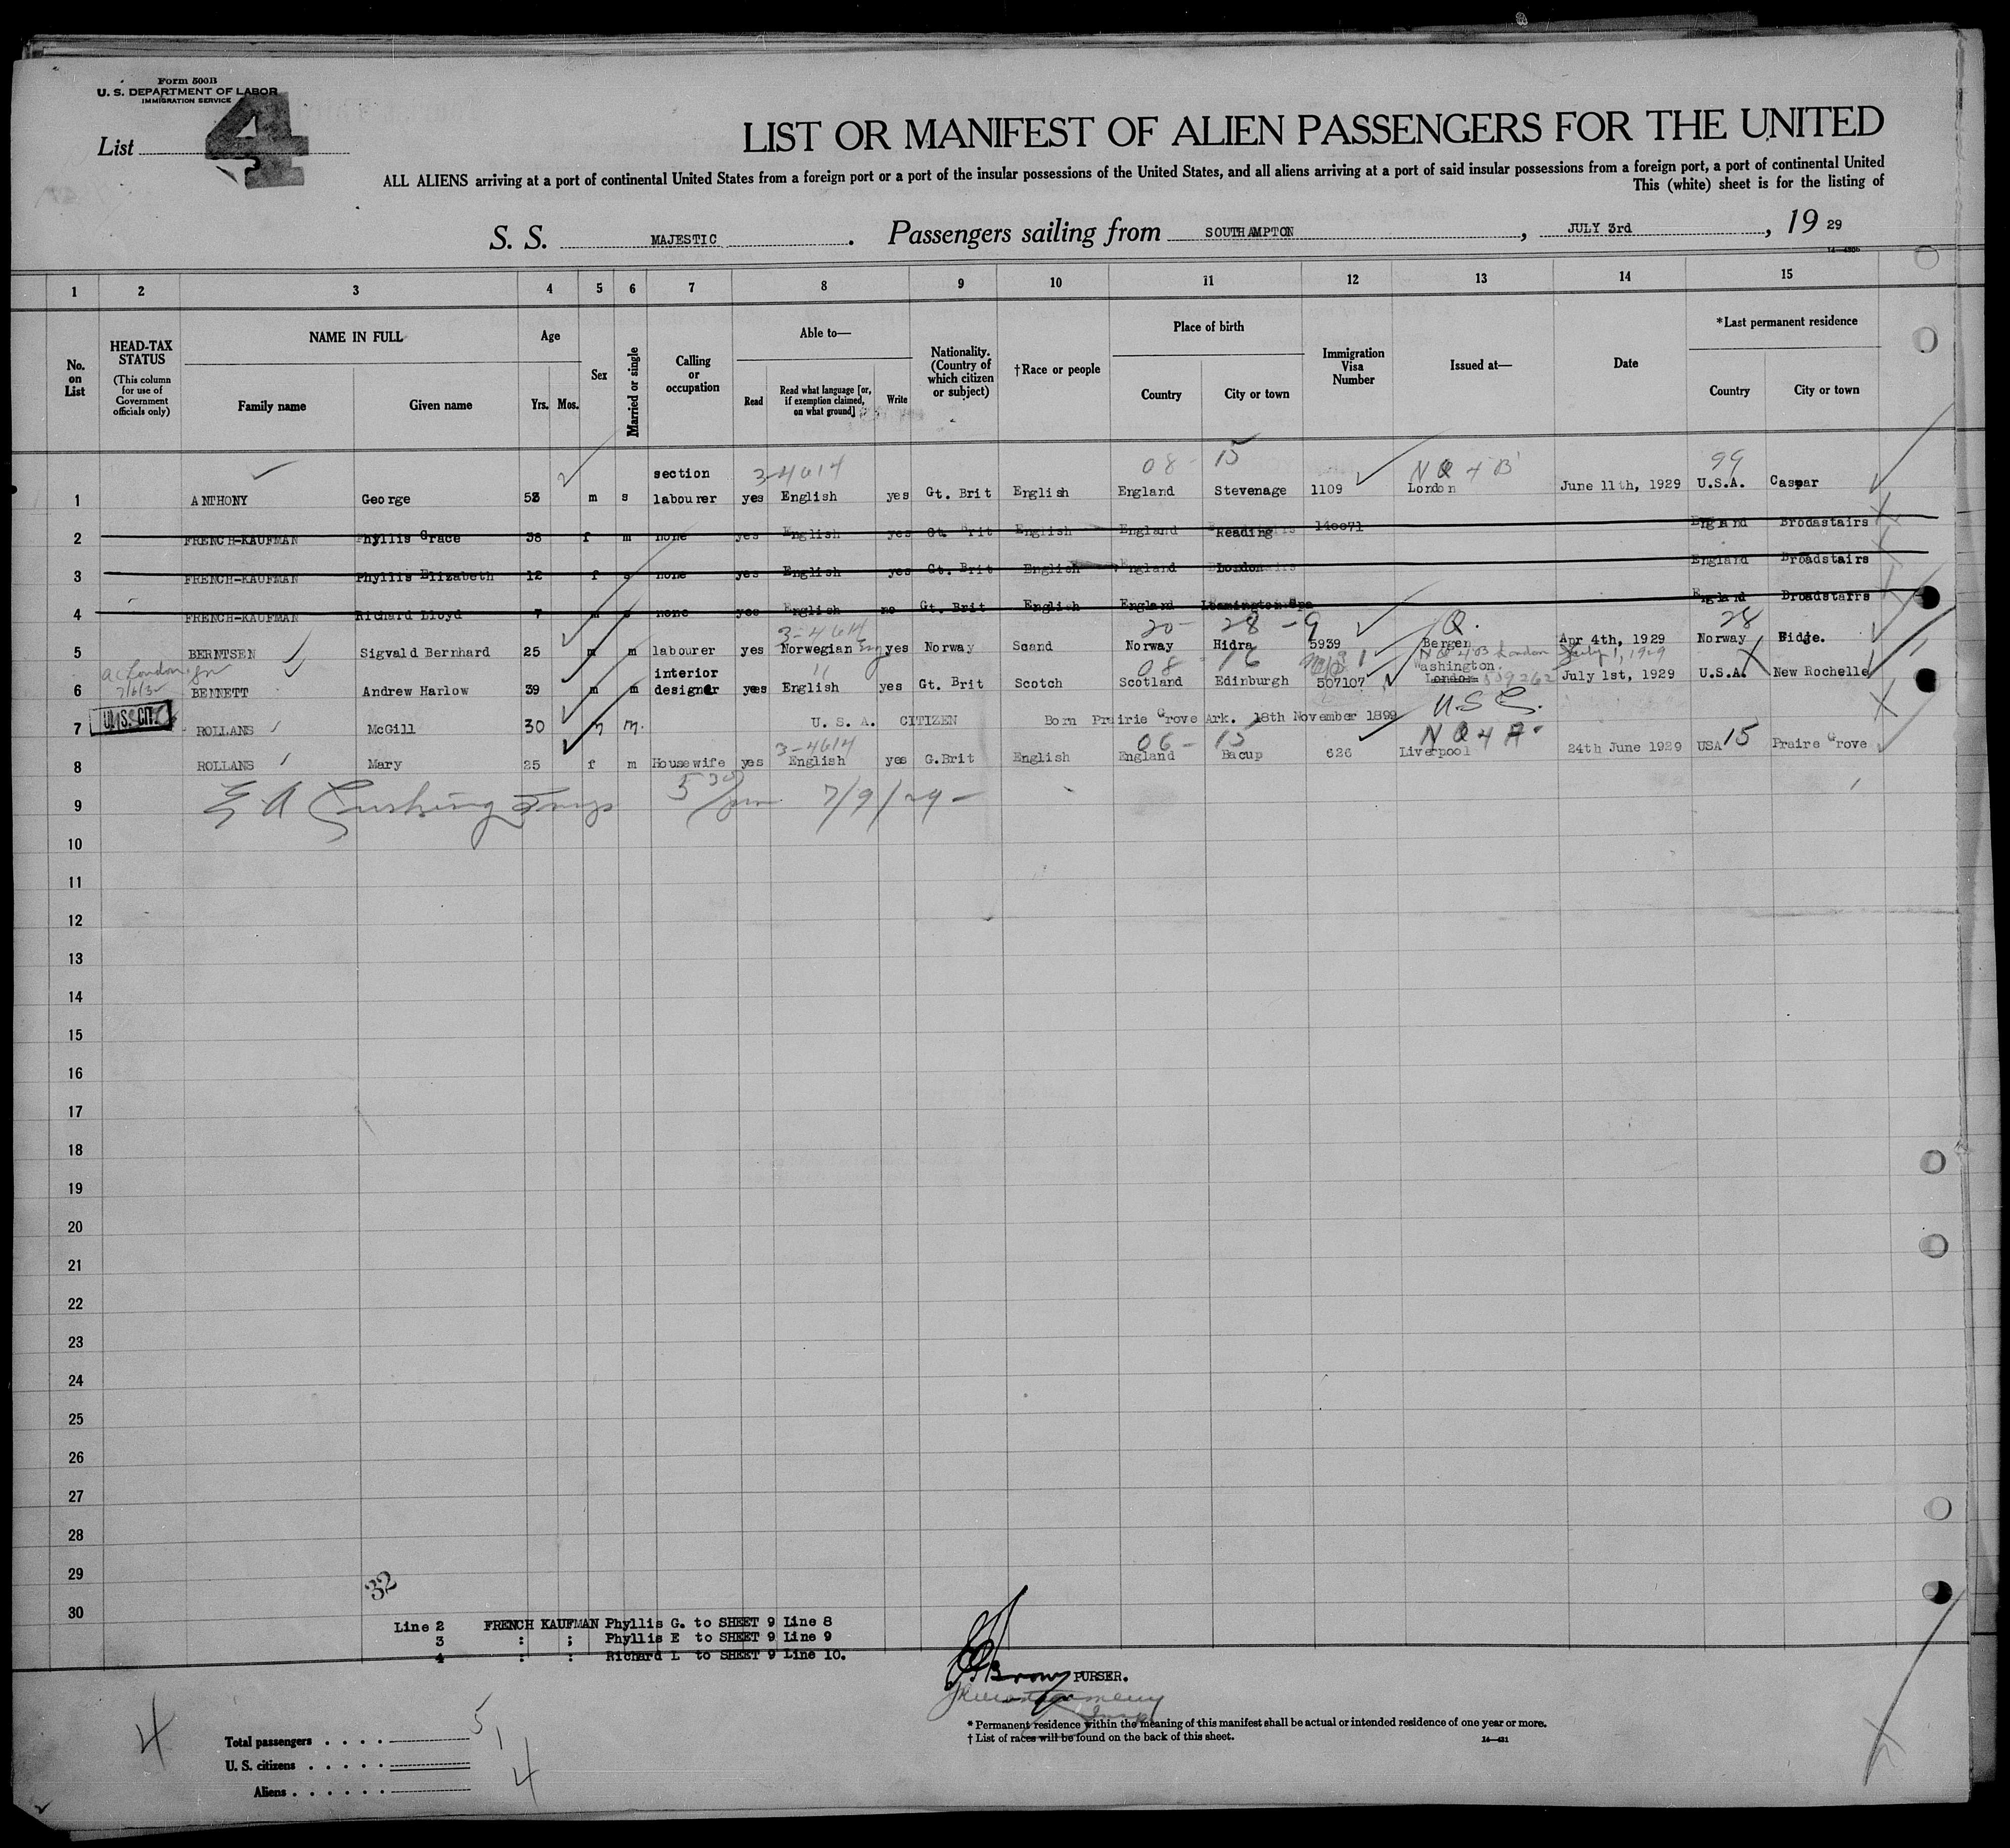 Form 500B
U. S. DEPARTMENT OF LABOR
IMMIGRATION SERVICE
List 4
LIST OR MANIFEST OF ALIEN PASSENGERS FOR THE UNITED
ALL ALIENS arriving at a port of continental United States from a foreign port or a port of the insular possessions of the United States, and all aliens arriving at a port of said insular possessions from a foreign port, a port of continental United
This (white) sheet is for the listing of
S. S. MAJESTIC . Passengers sailing from SOUTHAMPTON , JULY 3rd , 19 29
1 2 3 4 5 6 7 8 9 10 11 12 13 14 15
No. on List
HEAD-TAX STATUS (This column for use of Government officials only)
NAME IN FULL
Family name Given name
Age
Yrs. Mos.
Sex
Married or single
Calling or occupation
Able to—
Read Read what language [or, if exemption claimed, on what ground] Write
Nationality. (Country of which citizen or subject)
†Race or people
Place of birth
Country City or town
Immigration Visa Number
Issued at—
Date
*Last permanent residence
Country City or town
section 3-4614 08 - 15 N Q 4 B 99
1 ANTHONY George 53 m s labourer yes English yes Gt. Brit English England Stevenage 1109 London June 11th, 1929 U.S.A. Caspar
2 FRENCH-KAUFMAN Phyllis Grace 38 f m none yes English yes Gt. Brit English England Reading 140071 England Brodastairs
3 FRENCH-KAUFMAN Phyllis Elizabeth 12 f s none yes English yes Gt. Brit English England London England Broadstairs
4 FRENCH-KAUFMAN Richard Lloyd 7 m s none yes English no Gt. Brit English England Leamington Spa England Broadstairs
3-4614 20- 28 -9 Q. 28
5 BERNTSEN Sigvald Bernhard 25 m m labourer yes Norwegian Eng yes Norway Scand Norway Hidra 5939 Bergen Apr 4th, 1929 Norway Fidje.
London interior 11 08 - 16 London July 1, 1929
Washington.
6 BENNETT Andrew Harlow 39 m m designer yes English yes Gt. Brit Scotch Scotland Edinburgh 507107 London 509262 July 1st, 1929 U.S.A. New Rochelle
U. S. CIT. U.S.C.
7 ROLLANS McGill 30 m m. U. S. A. CITIZEN Born Prairie Grove Ark. 18th November 1899
3-4614 06 - 15 N Q 4 A
8 ROLLANS Mary 25 f m Housewife yes English yes G.Brit English England Bacup 626 Liverpool 24th June 1929 USA 15 Praire Grove
9 E A Cushing Insp 5 30/pm 7/9/29-
10
11
12
13
14
15
16
17
18
19
20
21
22
23
24
25
26
27
28
29
32
30
Line 2 FRENCH KAUFMAN Phyllis G. to SHEET 9 Line 8
3 : ; Phyllis E to SHEET 9 Line 9
4 : : Richard L to SHEET 9 Line 10.
Brown PURSER.
* Permanent residence within the meaning of this manifest shall be actual or intended residence of one year or more.
† List of races will be found on the back of this sheet.
14—431
4
Total passengers . . . . 5
U. S. citizens . . . . . 1
Aliens . . . . . . 4